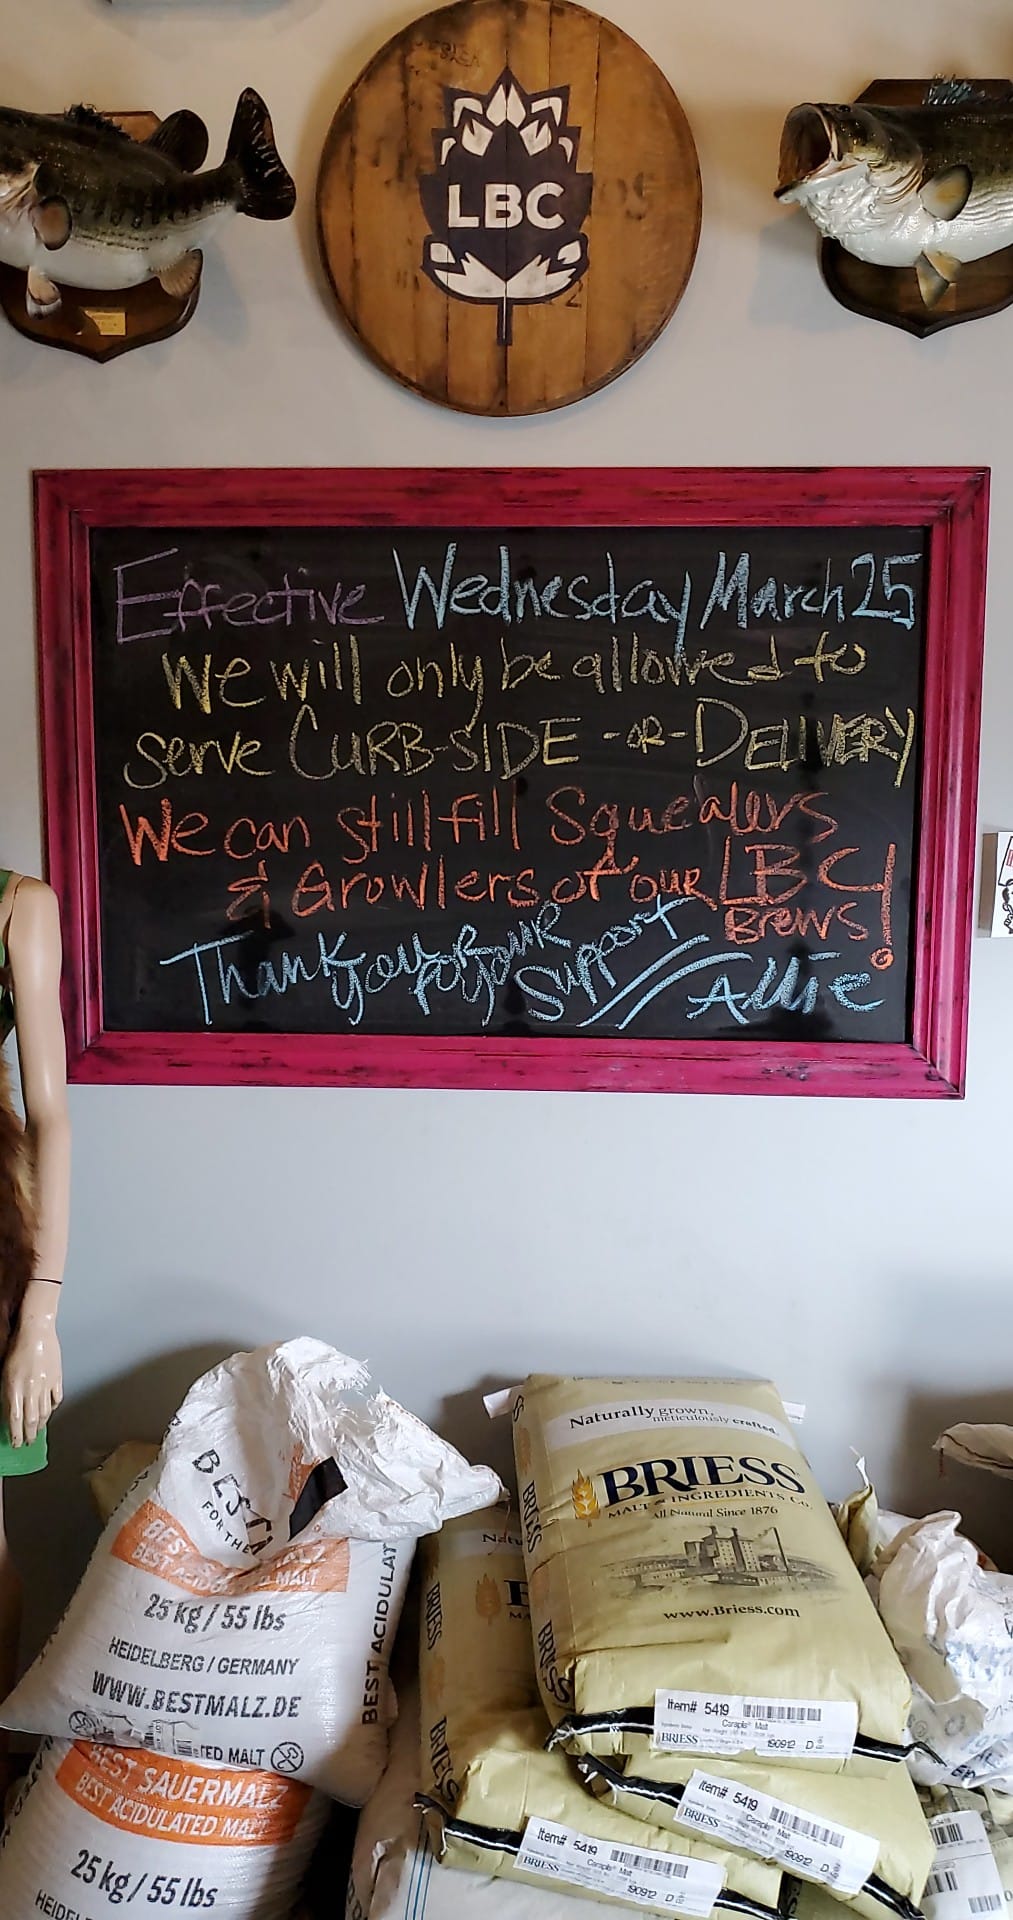 LBC
Effective Wednesday March 25
We will only be allowed to
serve CURB-SIDE -OR- DELIVERY
We can still fill Squealers
& Growlers of our LBC
BREWS!
Thank you for your Support // Allie
BEST
FOR THE
BEST ACIDULATED MALT
25 kg / 55 lbs
HEIDELBERG / GERMANY
WWW.BESTMALZ.DE
TED MALT
BEST ACIDULAT
BEST SAUERMALZ
BEST ACIDULATED MALT
25 kg / 55 lbs
Naturally grown,
meticulously crafted.
BRIESS
MALT & INGREDIENTS Co.
All Natural Since 1876
www.Briess.com
BRIESS
BRIESS
BRIESS
BRIESS
Item# 5419
Carapils® Malt
BRIESS
190912 D
Item# 5419
Carapils® Malt
BRIESS
190912 D
Item# 5419
Carapils® Malt
BRIESS
190912 D